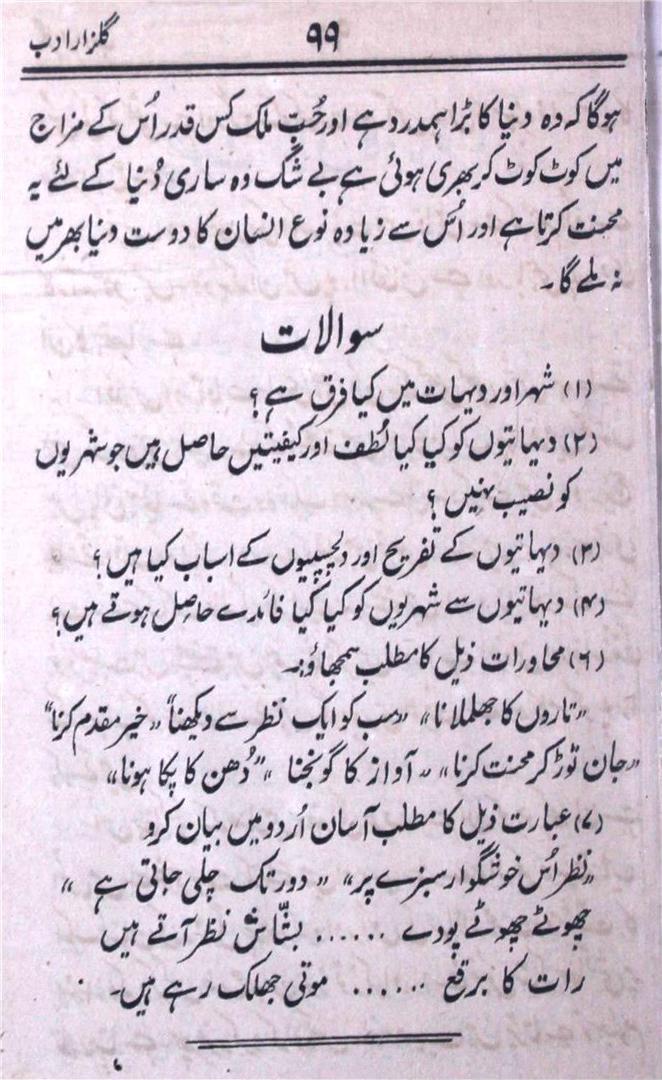 گلزار ادب ۹۹
ہوگا کہ وہ دنیا کا بڑا ہمدرد ہے اور حُبِّ ملک کس قدر اُس کے مزاج
میں کوٹ کوٹ کر بھری ہوئی ہے بے شک وہ ساری دُنیا کے لئے یہ
محنت کرتا ہے اور اُس سے زیادہ نوع انسان کا دوست دنیا بھر میں
نہ ملے گا۔
سوالات
(۱) شہر اور دیہات میں کیا فرق ہے؟
(۲) دیہاتیوں کو کیا کیا لُطف اور کیفیتیں حاصل ہیں جو شہریوں
کو نصیب نہیں؟
(۳) دیہاتیوں کے تفریح اور دلچسپیوں کے اسباب کیا ہیں؟
(۴) دیہاتیوں سے شہریوں کو کیا کیا فائدے حاصل ہوتے ہیں؟
(۶) محاورات ذیل کا مطلب سمجھاؤ:۔
"تاروں کا جھلملانا" "سب کو ایک نظر سے دیکھنا" "خیر مقدم کرنا"
"جان توڑ کر محنت کرنا" "آواز کا گونجنا" "دُھن کا پکا ہونا"
(۷) عبارت ذیل کا مطلب آسان اُردو میں بیان کرو
"نظر اُس خوشگوار سبزے پر" "دور تک چلی جاتی ہے"
چھوٹے چھوٹے پودے ...... بشّاش نظر آتے ہیں
رات کا برقع ...... موتی جھلک رہے ہیں۔